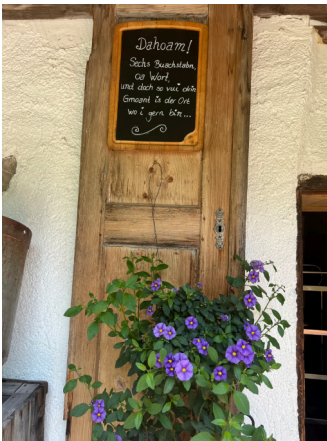 Dahoam!
Sechs Buachstabn,
oa Wort,
und doch so vui drin
Gmoant is der Ort
wo i gern bin...